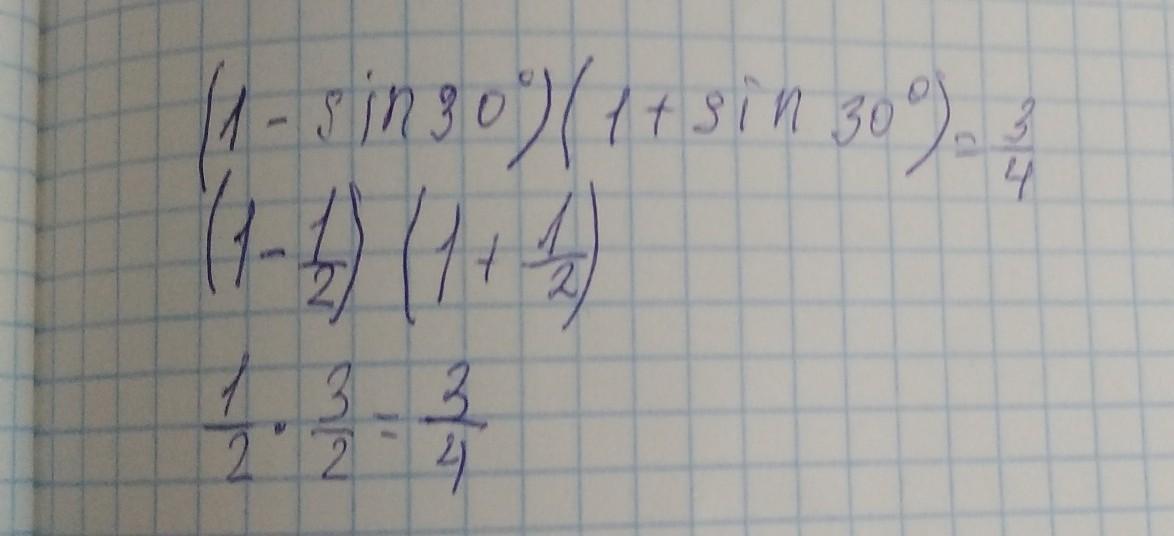 (1 - sin 30°)(1 + sin 30°) = 3/4
(1 - 1/2) (1 + 1/2)
1/2 · 3/2 = 3/4